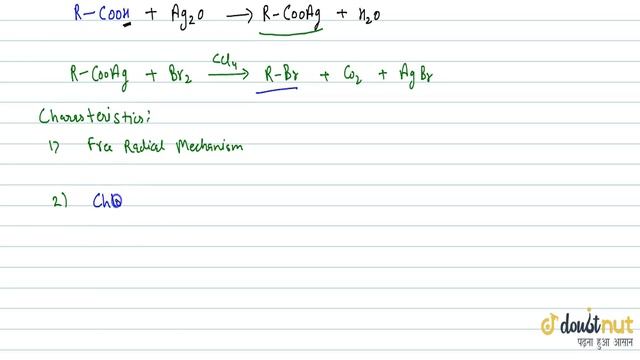 R-COOH + Ag2O → R-COOAg + H2O
R-COOAg + Br2 CCl4 → R-Br + CO2 + AgBr
Charesteristics:
1) Free Radical Mechanism
2) Ch
doubtnut
पढ़ना हुआ आसान